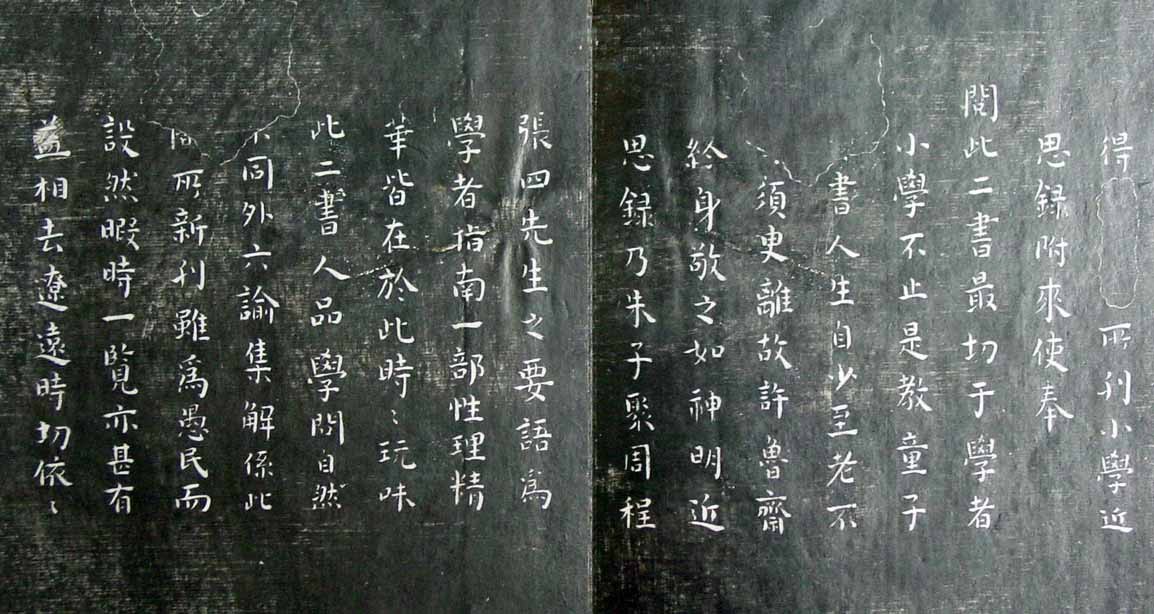 得所刊小學近
思録附來使奉
閱此二書最切于學者
小學不止是教童子
書人生自少至老不
須臾離故許魯齋
終身敬之如神明近
思録乃朱子聚周程
張四先生之要語爲
學者指南一部性理精
華皆在於此時〻玩味
此二書人品學問自然
不同外六諭集解係此
間所新刊雖爲愚民而
設然暇時一覽亦甚有
益相去遼遠時切依〻